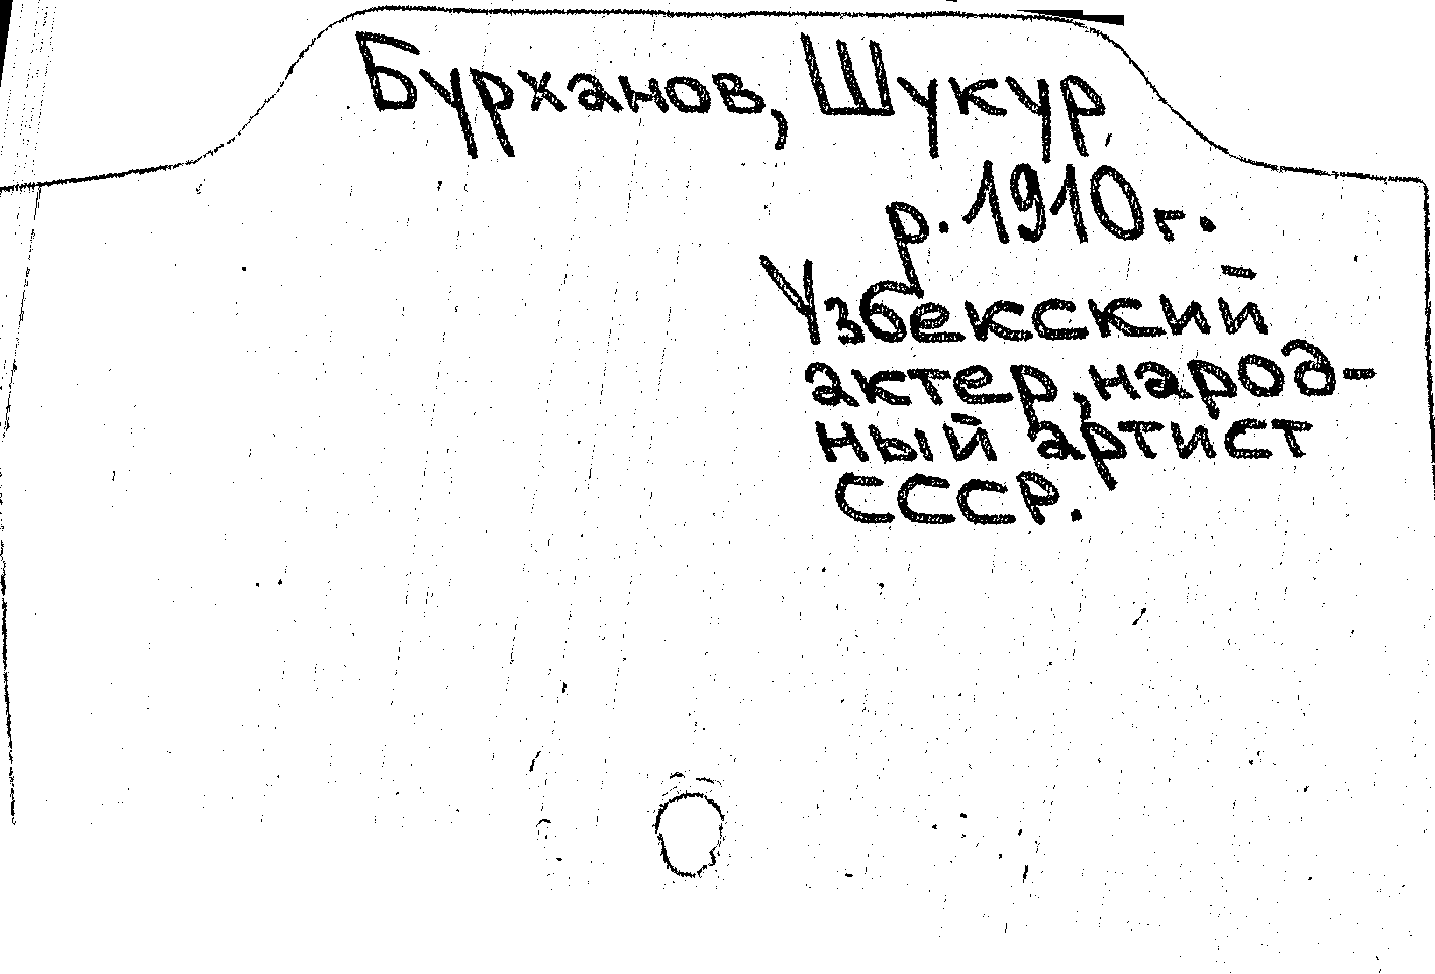 Бурханов, Шукур
р. 1910 г.
Узбекский
актер, народ-
ный артист
СССР.